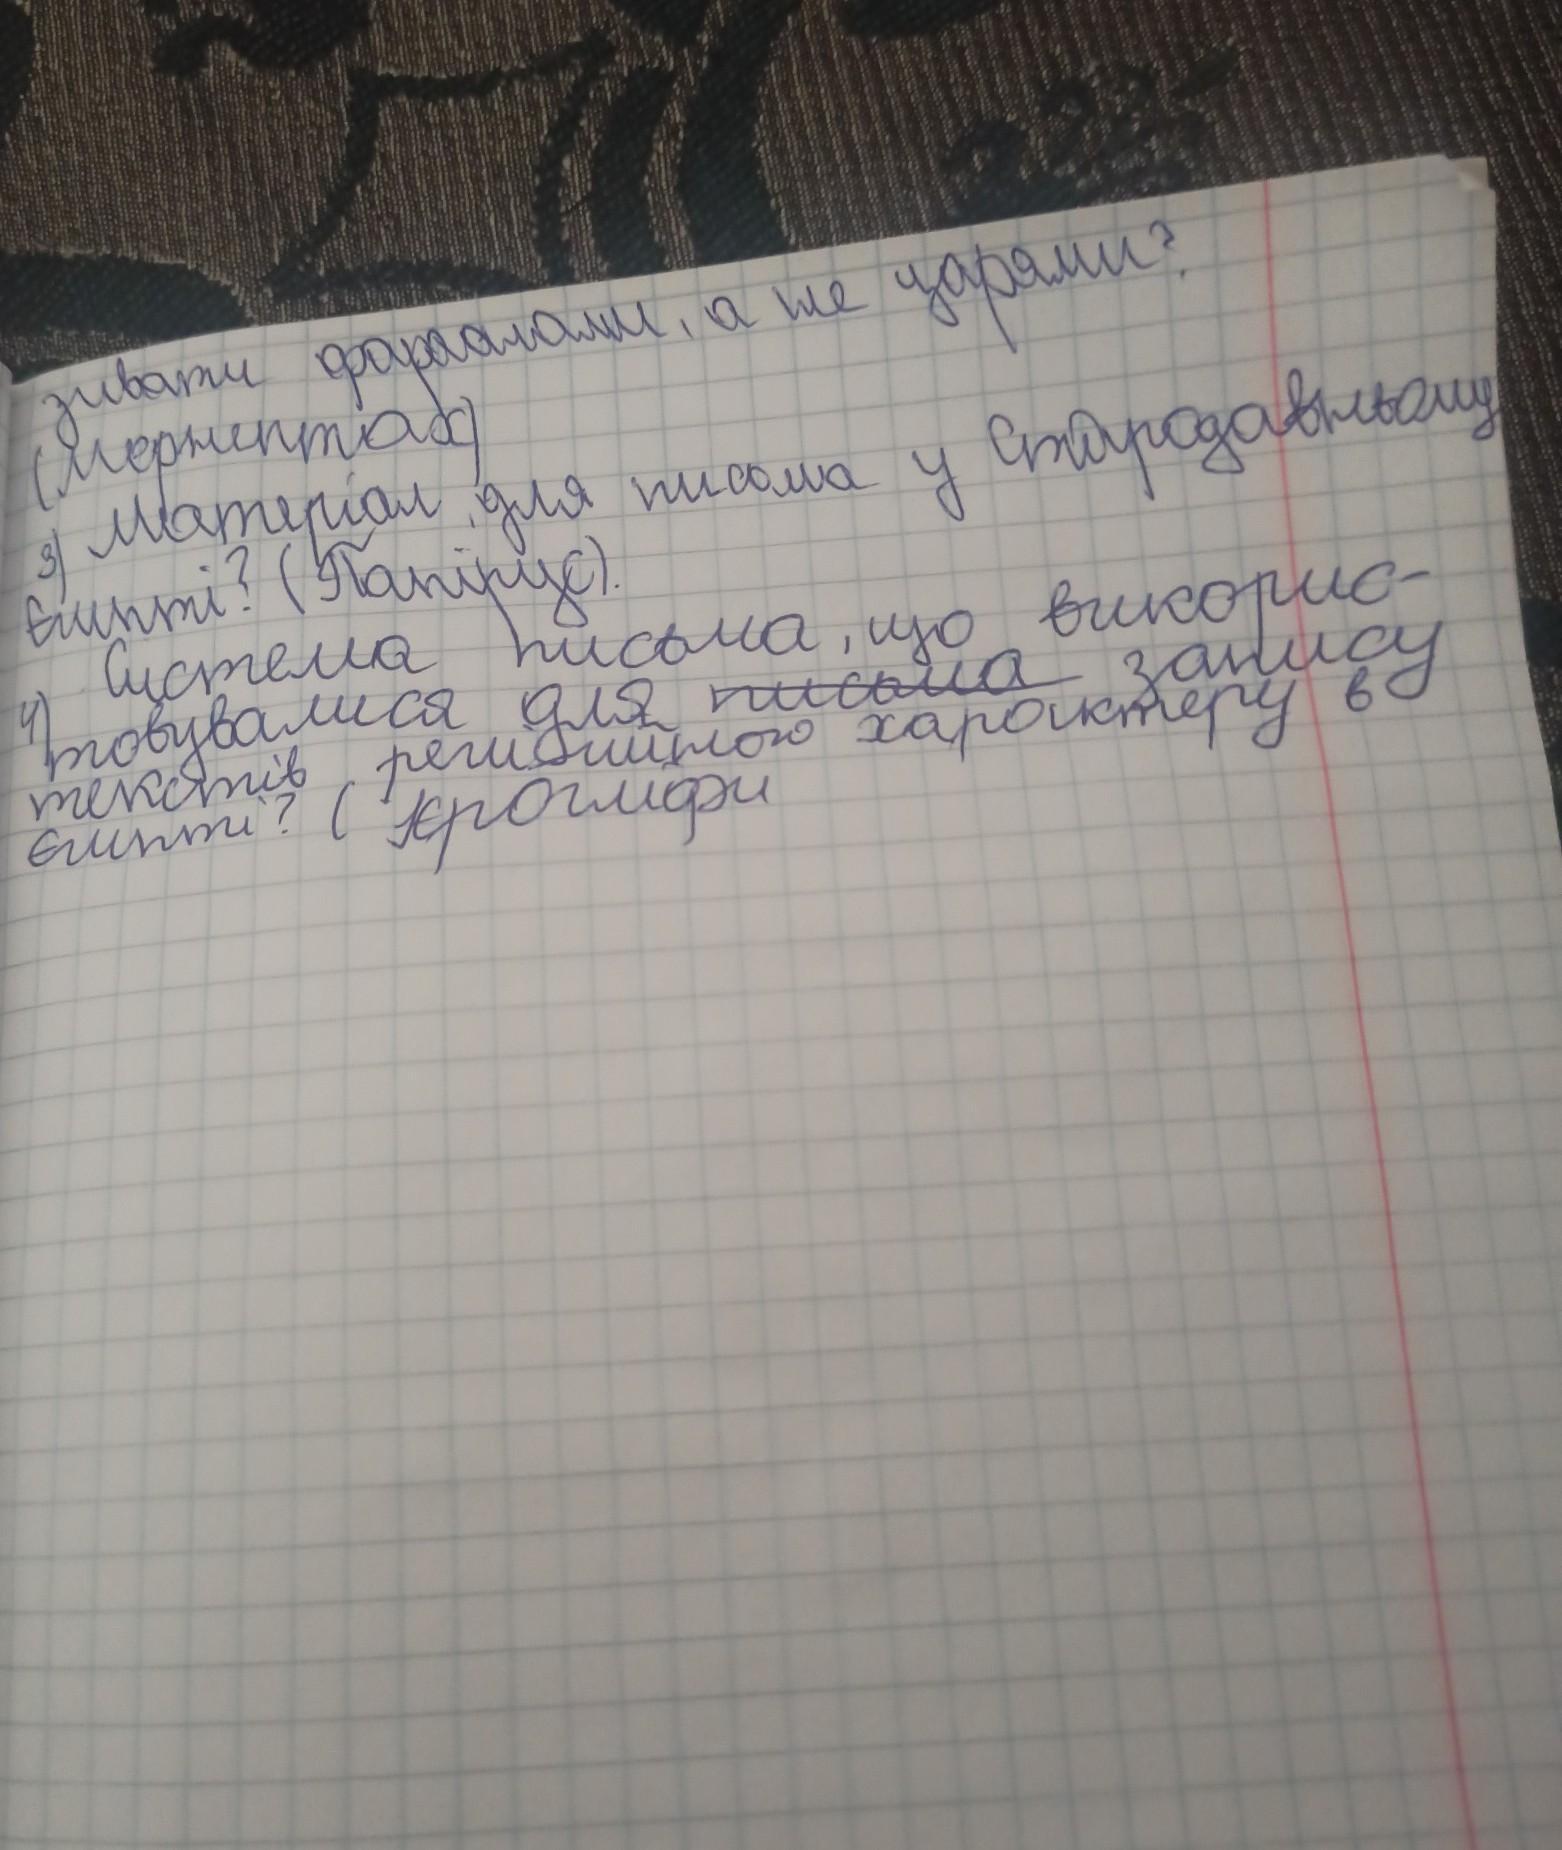 зивати фараонами, а не царями?
(Мернептах)
3) Матеріал для письма у Стародавньому
Єгипті? (Папірус).
4) Система письма, що викорис-
товувалися для письма запису
текстів релігійного характеру в
Єгипті? ( Ієрогліфи